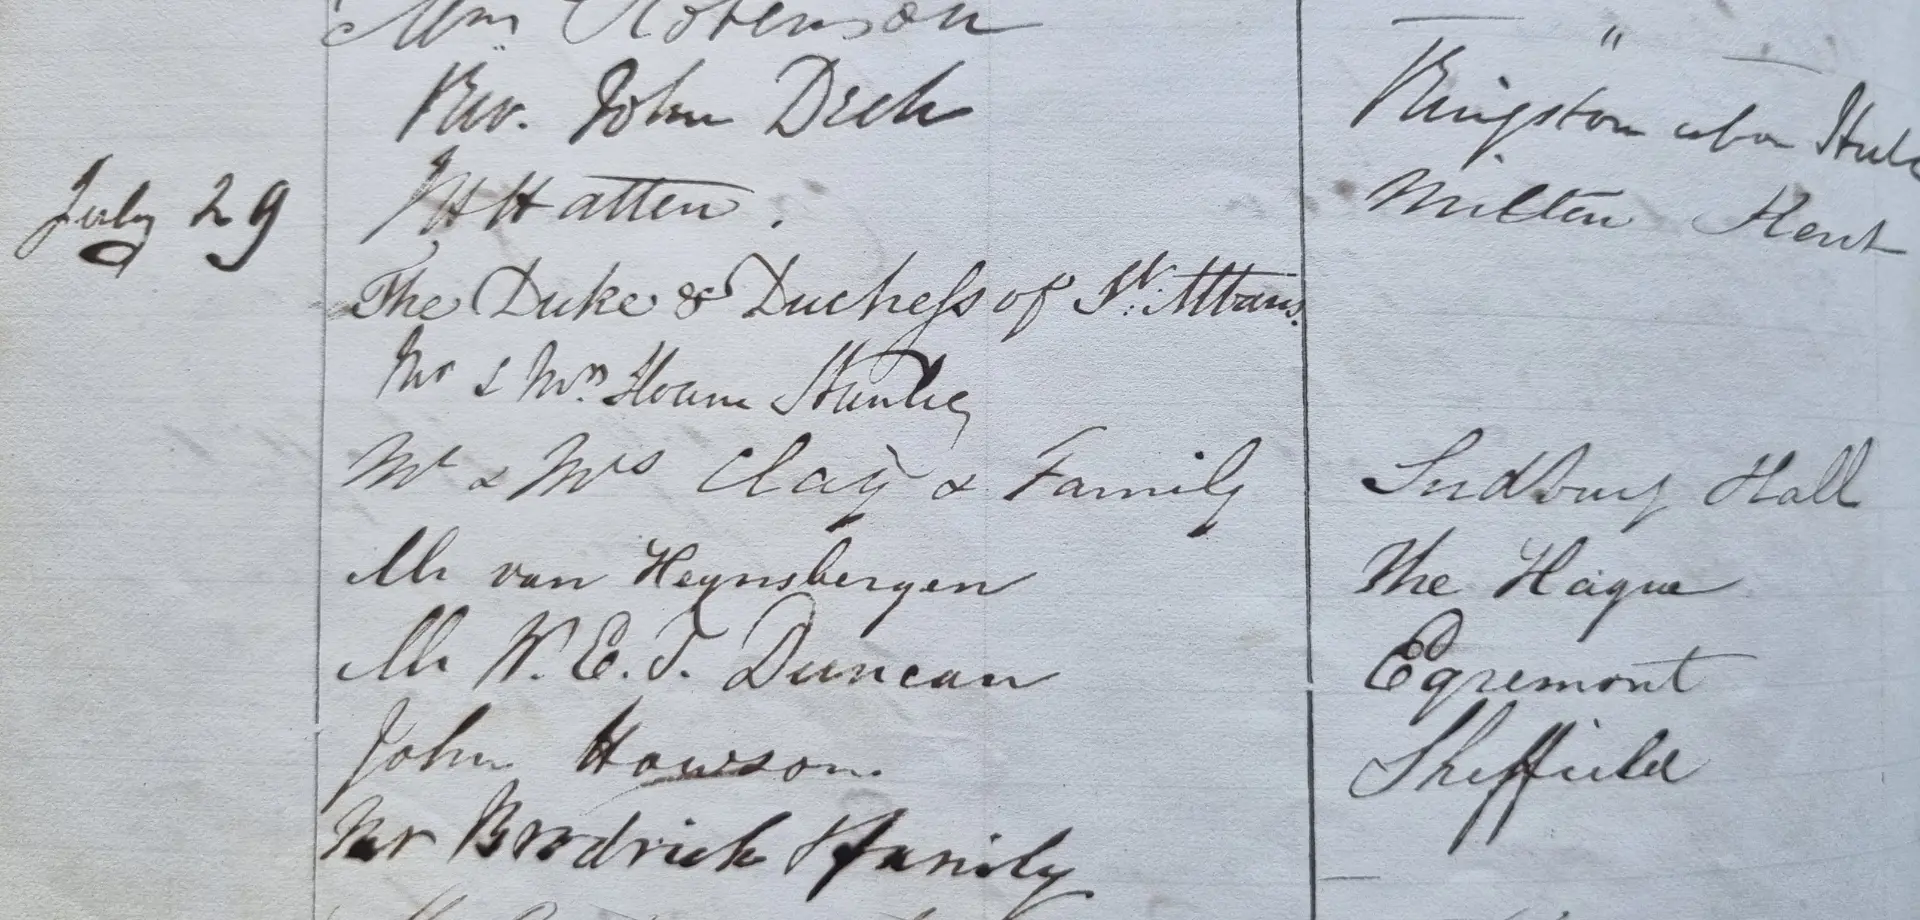 Robinson "
Rev. John Dick Kingston upon Hull
July 29 Hatten. Milton Kent
The Duke & Duchess of St. Albans.
Mr & Mrs. Stanley
Mr & Mrs Clay & Family Sudbury Hall
Mr van Heynsbergen The Hague
Mr W. E. J. Duncan Egremont
John Howson. Sheffield
Mr Brodrick & family